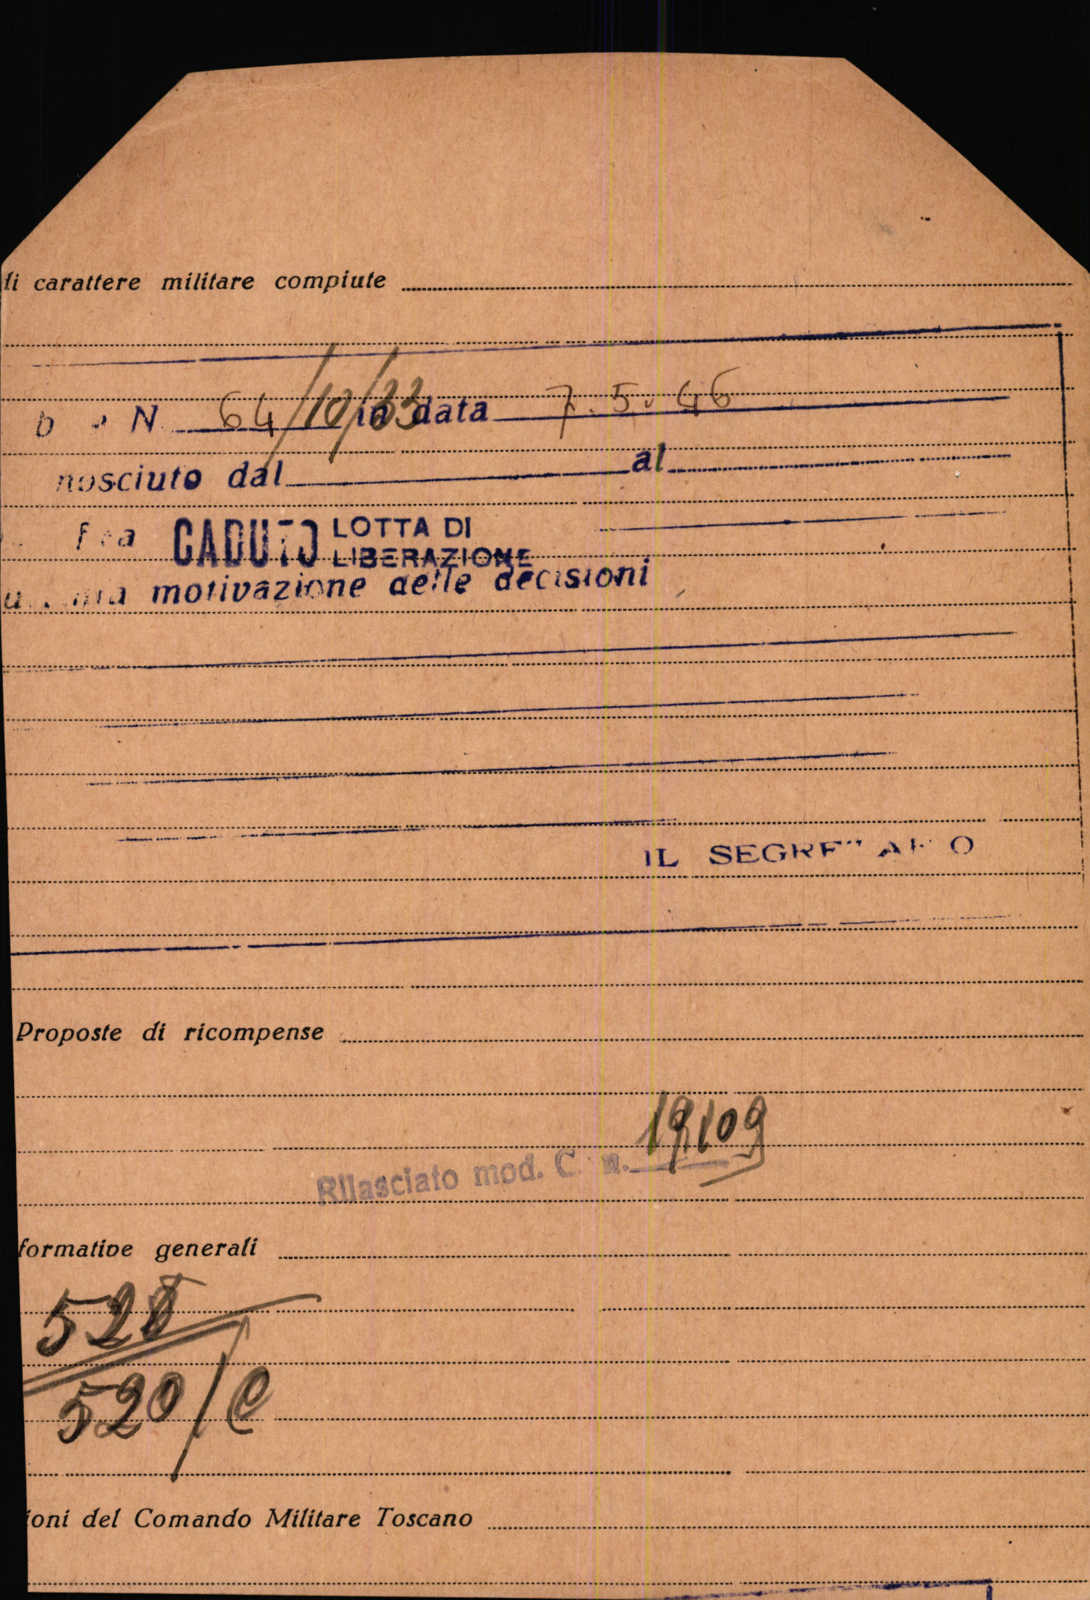 di carattere militare compiute
N. 64/10/33 in data 7.5.46
nosciuto dal al
CADUTO LOTTA DI
LIBERAZIONE
motivazione delle decisioni
IL SEGRETARIO
Proposte di ricompense
19109
Rilasciato mod. C n.
formative generali
528
520/C
ioni del Comando Militare Toscano